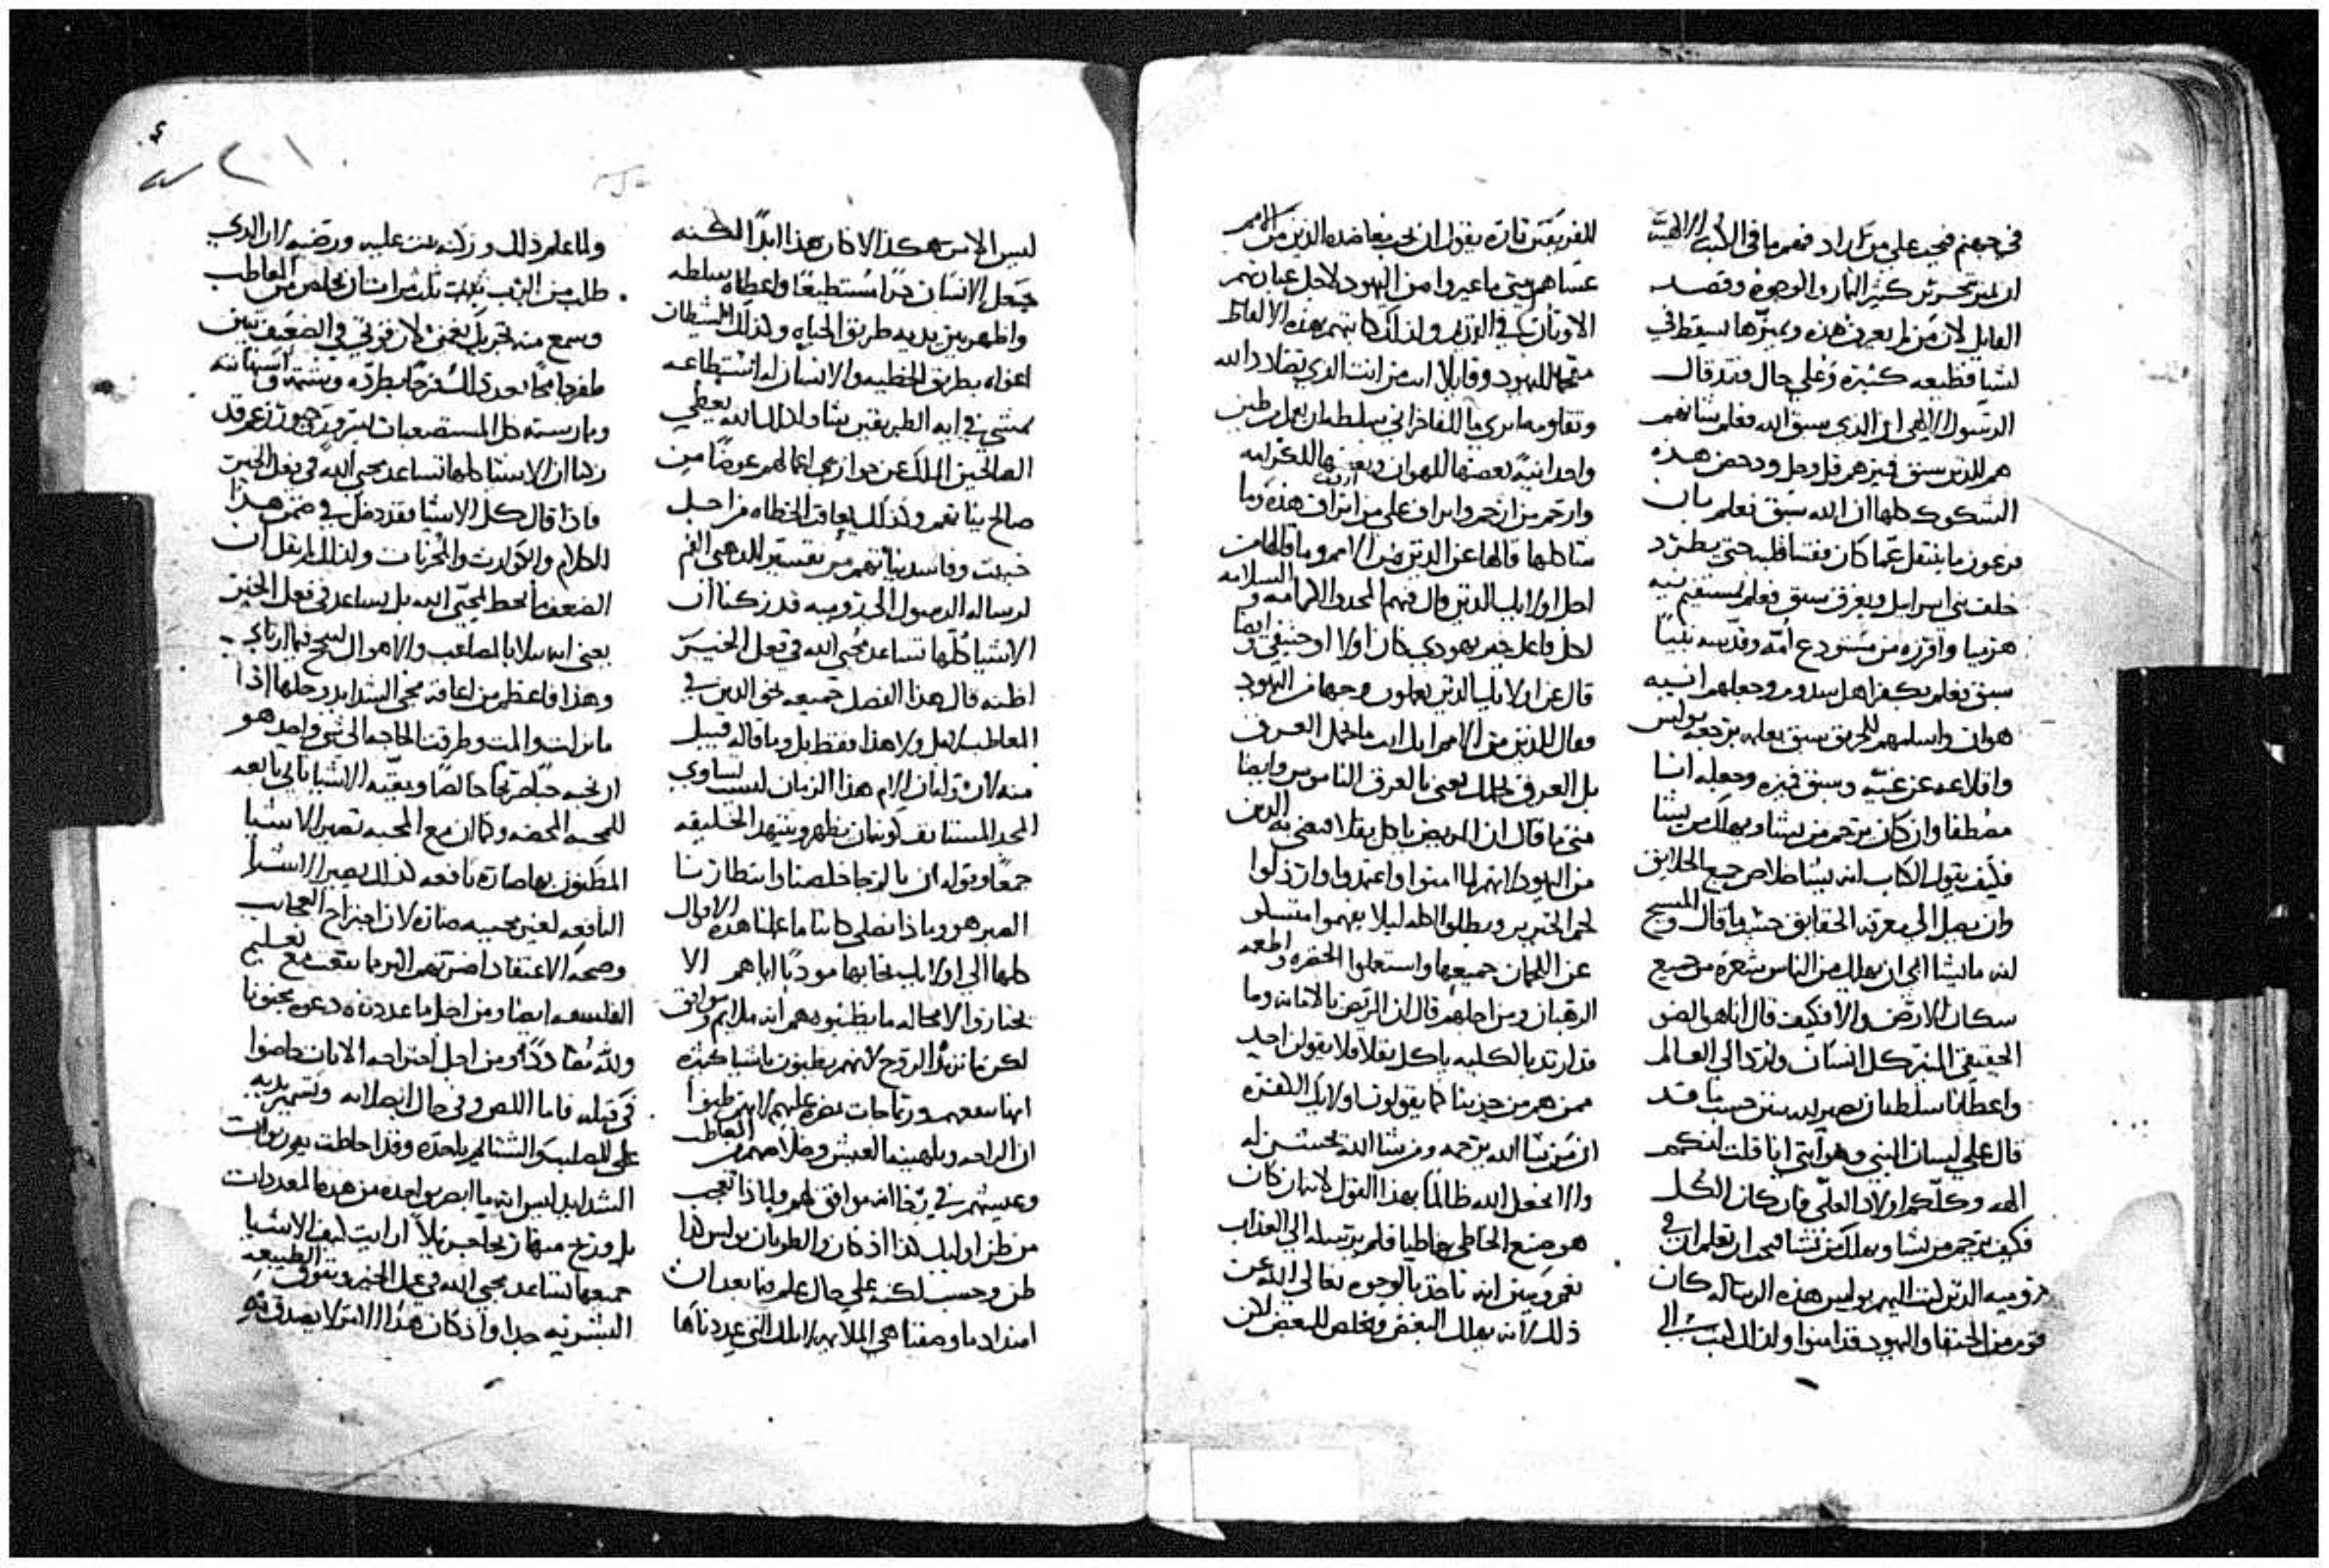 في جهنم فيجب علي من اراد فهم ما في الكتب الالهيه
ان يميز تحرير كثير الما والوجوه وقصد
القايل لان من لم يعرف هذه ويميزها يسقط في
اشيا فظيعه كثيره وعلي حال فقد قال
الرسول الالهي ان الذي سبق الله فعلم شانهم
هم الذين سبق فميزهم فل وحل ودحض هذه
الشكوك كلها ان الله سبق فعلم بان
فرعون ما ينتقل عما كان فقسا قلبه حتي يطرد
خلف بني اسراييل ويغرق سبق فعلم
ارميا وافرزه من مستودع امه وقدسه نبيا
سبق فعلم بكفر اهل سدوم وجعلهم انيه
هوان واسلمهم للحريق سبق بعلمه برجعه بولس
واقلاعه عن غيه وسبق فميزه وجعله انا
مصطفا وان كان يرحم من يشا ويهلك من يشا
فكيف يقول الكتاب انه يشا خلاص جميع الخلايق
وان يصل الي معرفه الحقايق حسب ما قال المسيح
انه ما يشا ابي ان يهلك من الناس شعره من جميع
سكان الارض والا فكيف قال انا هو الضو
الحقيقي المنير كل انسان وارد الي العالم
واعطانا سلطانا نصير لله بنين حسب ما قد
قال علي لسان النبي وهو اتي انا قلت انكم
الهه وكلكم اولاد العلي فان كان الكل
فكيف يرحم من يشا ويهلك من يشا فيجب ان تعلم ان في
روميه الذين كتب اليهم بولس هذه الرساله كان
قوم من الحنفا واليهود قد امنوا ولذلك كتب الي
للفريقين تاره يقول ان يجب معاضده الذين من الامم
عساهم متي ما عيروا من اليهود لاجل عبادتهم
الاوثان في القديم ولذلك كاتبهم بهذه الالفاظ
مقمعا لليهود وقايلا انت من انت الذي تضادد الله
وتقاومه ما تري ما للفاخراني سلطه ان يعمل من طين
واحد انيه بعضها للهوان وبعضها للكرامه
وارحم من ارحم واتراف علي من اتراف هذه وما
شاكلها قالها عن الذين من الامم وما قاله من
اجل اوليك الذين قال فيهم المجد والكرامه والسلامه
لكل فاعل خير يهودي كان اولا او حنيفي وايضا
قال عن اوليك الذين يعلمون وجها من اليهود
فقال للذين من الامم ايل انت ما تحمل العرق
بل العرق يحملك يعني بالعرق الناموس وايضا
متي ما قال ان المريض ياكل بقلا فيعني به الذين
من اليهود لانهم لما امنوا واعتمدوا وارذلوا
لحم الخنزير وبطلوا اكله ليلا يفهموا امتنعوا
عن اللحمان جميعها واستعملوا الخضره واطعمه
الرهبان ومن اجلهم قال ان المريض بالامانه وما
قد ارتد بالكليه ياكل بقلا فلا يقولن احد
ممن هم من حزبنا كما يقولون اوليك الكفره
ان من شا الله يرحمه ومن شا الله يخشن له
والا نجعل الله ظالما بهذا القول لانه ان كان
هو صنع الخاطي خاطيا فلم يرسله الي العذاب
نعم وتبين انه ناخذ بالوجوه تعالي الله عن
ذلك لانه يهلك البعض ويخلص البعض لان
ليس الامر هكذا لا كان هذا ابدا لكنه
جعل الانسان حرا مستطيعا واعطاه سلطه
واظهر بين يديه طريق الحياه وكذلك الشيطان
اغراه بطريق الخطيه والانسان له استطاعه
يمشي في ايه الطريقين شا ولذلك الله يعطي
الصالحين الملك عن جوايز اعمالهم عوضا من
صالح بنياتهم وكذلك يعاقب الخطاه من اجل
خبث وفاسد نياتهم من تفسير الذهبي الفم
لرساله الرسول الي روميه قد زكنا ان
الاشيا كلها تساعد محبي الله في فعل الخير
اظنه قال هذا الفصل جميعه نحو الذين في
المعاطب بل ولا هذا فقط بل وما قاله قبيل
منه لان قوله ان الام هذا الزمان ليست تساوي
المجد المستانف كونه ان يظهر ويتنهد الخليقه
جمعا وقوله ان بالرجا خلصنا وانتظارنا
الصبر هو وماذا نصلي كاننا ما علمنا هذه الاقوال
كلها الي اوليك نحا بها مودبا اياهم الا
يختاروا لا محاله ما يظنوه هم انه ملايم وموافق
لكن ما يريد الروح لانهم يظنون باشيا كثيره
انها تنفعهم وربما جات مضره عليهم لانهم ظنوا
ان الراحه وبلهنية العيش وخلاصهم من المعاطب
وعيشهم في رخا انه موافق لهم ولماذا تعجب
من ظن اوليك هذا اذ كان والطوبان بولس هذا
ظن وحسب لكنه علي حال علم فيما بعد ان
اضداد ما وصفنا هي الملايمه تلك التي عددناها
ولما علم ذلك وزكنه ثبت عليه ورضيه لان الذي
طلب من الرب ثلث مرات ان يخلص من المعاطب
وسمع منه تجزيك نعمتي لان قوتي في الضعف تبين
طفر جامحا بعد ذلك فرحا بطرده وشتمه واستهانته
وممارسته كل المستصعبات
زكنا ان الاشيا كلها تساعد محبي الله في فعل الخير
فاذا قال كل الاشيا فقد دخل في ضمن هذا
الكلام والكوارث والمحزنات ولذلك لم يقل ان
الضعف ما يحط لمحبي الله بل يساعد في فعل الخير
يعني انه سلانا بالمصاعب والاهوال
وهذا فاعظم من اعاقه مجي الشدايد وحلها اذا
ما نزلت والمت وطرقت الحاجه الي شي واحد هو
ان نحبه حبا صريحا خالصا وبقيه الاشيا تاتي تابعه
للمحبه المحضه وكما ان مع المحبه تصير الاشيا
المظنون بها ضاره نافعه كذلك يصير الاشيا
النافعه لغير محبيه ضاره لان اجتراح العجايب
وصحه الاعتقاد اضرتهم اكثر مما نفعت مع تعليم
الفلسفه ايضا ومن اجل ما عددناه دعوه مجنونا
ولله مضاددا ومن اجل اجتراحه الايات خاضوا
في قتله فاما اللص وفي حال انصلابه وتسمير يديه
علي الصليب والشتايم ياخذه وقد احاطت به ربوات
الشدايد ليس انه ما انضر بواحده من هذه المعددات
بل وربح منها ربحا جزيلا ارايت كيف الاشيا
جميعها تساعد محبي الله في عمل الخير وتفوق الطبيعه
البشريه جدا واذ كان هذا الامر لا يصدق به